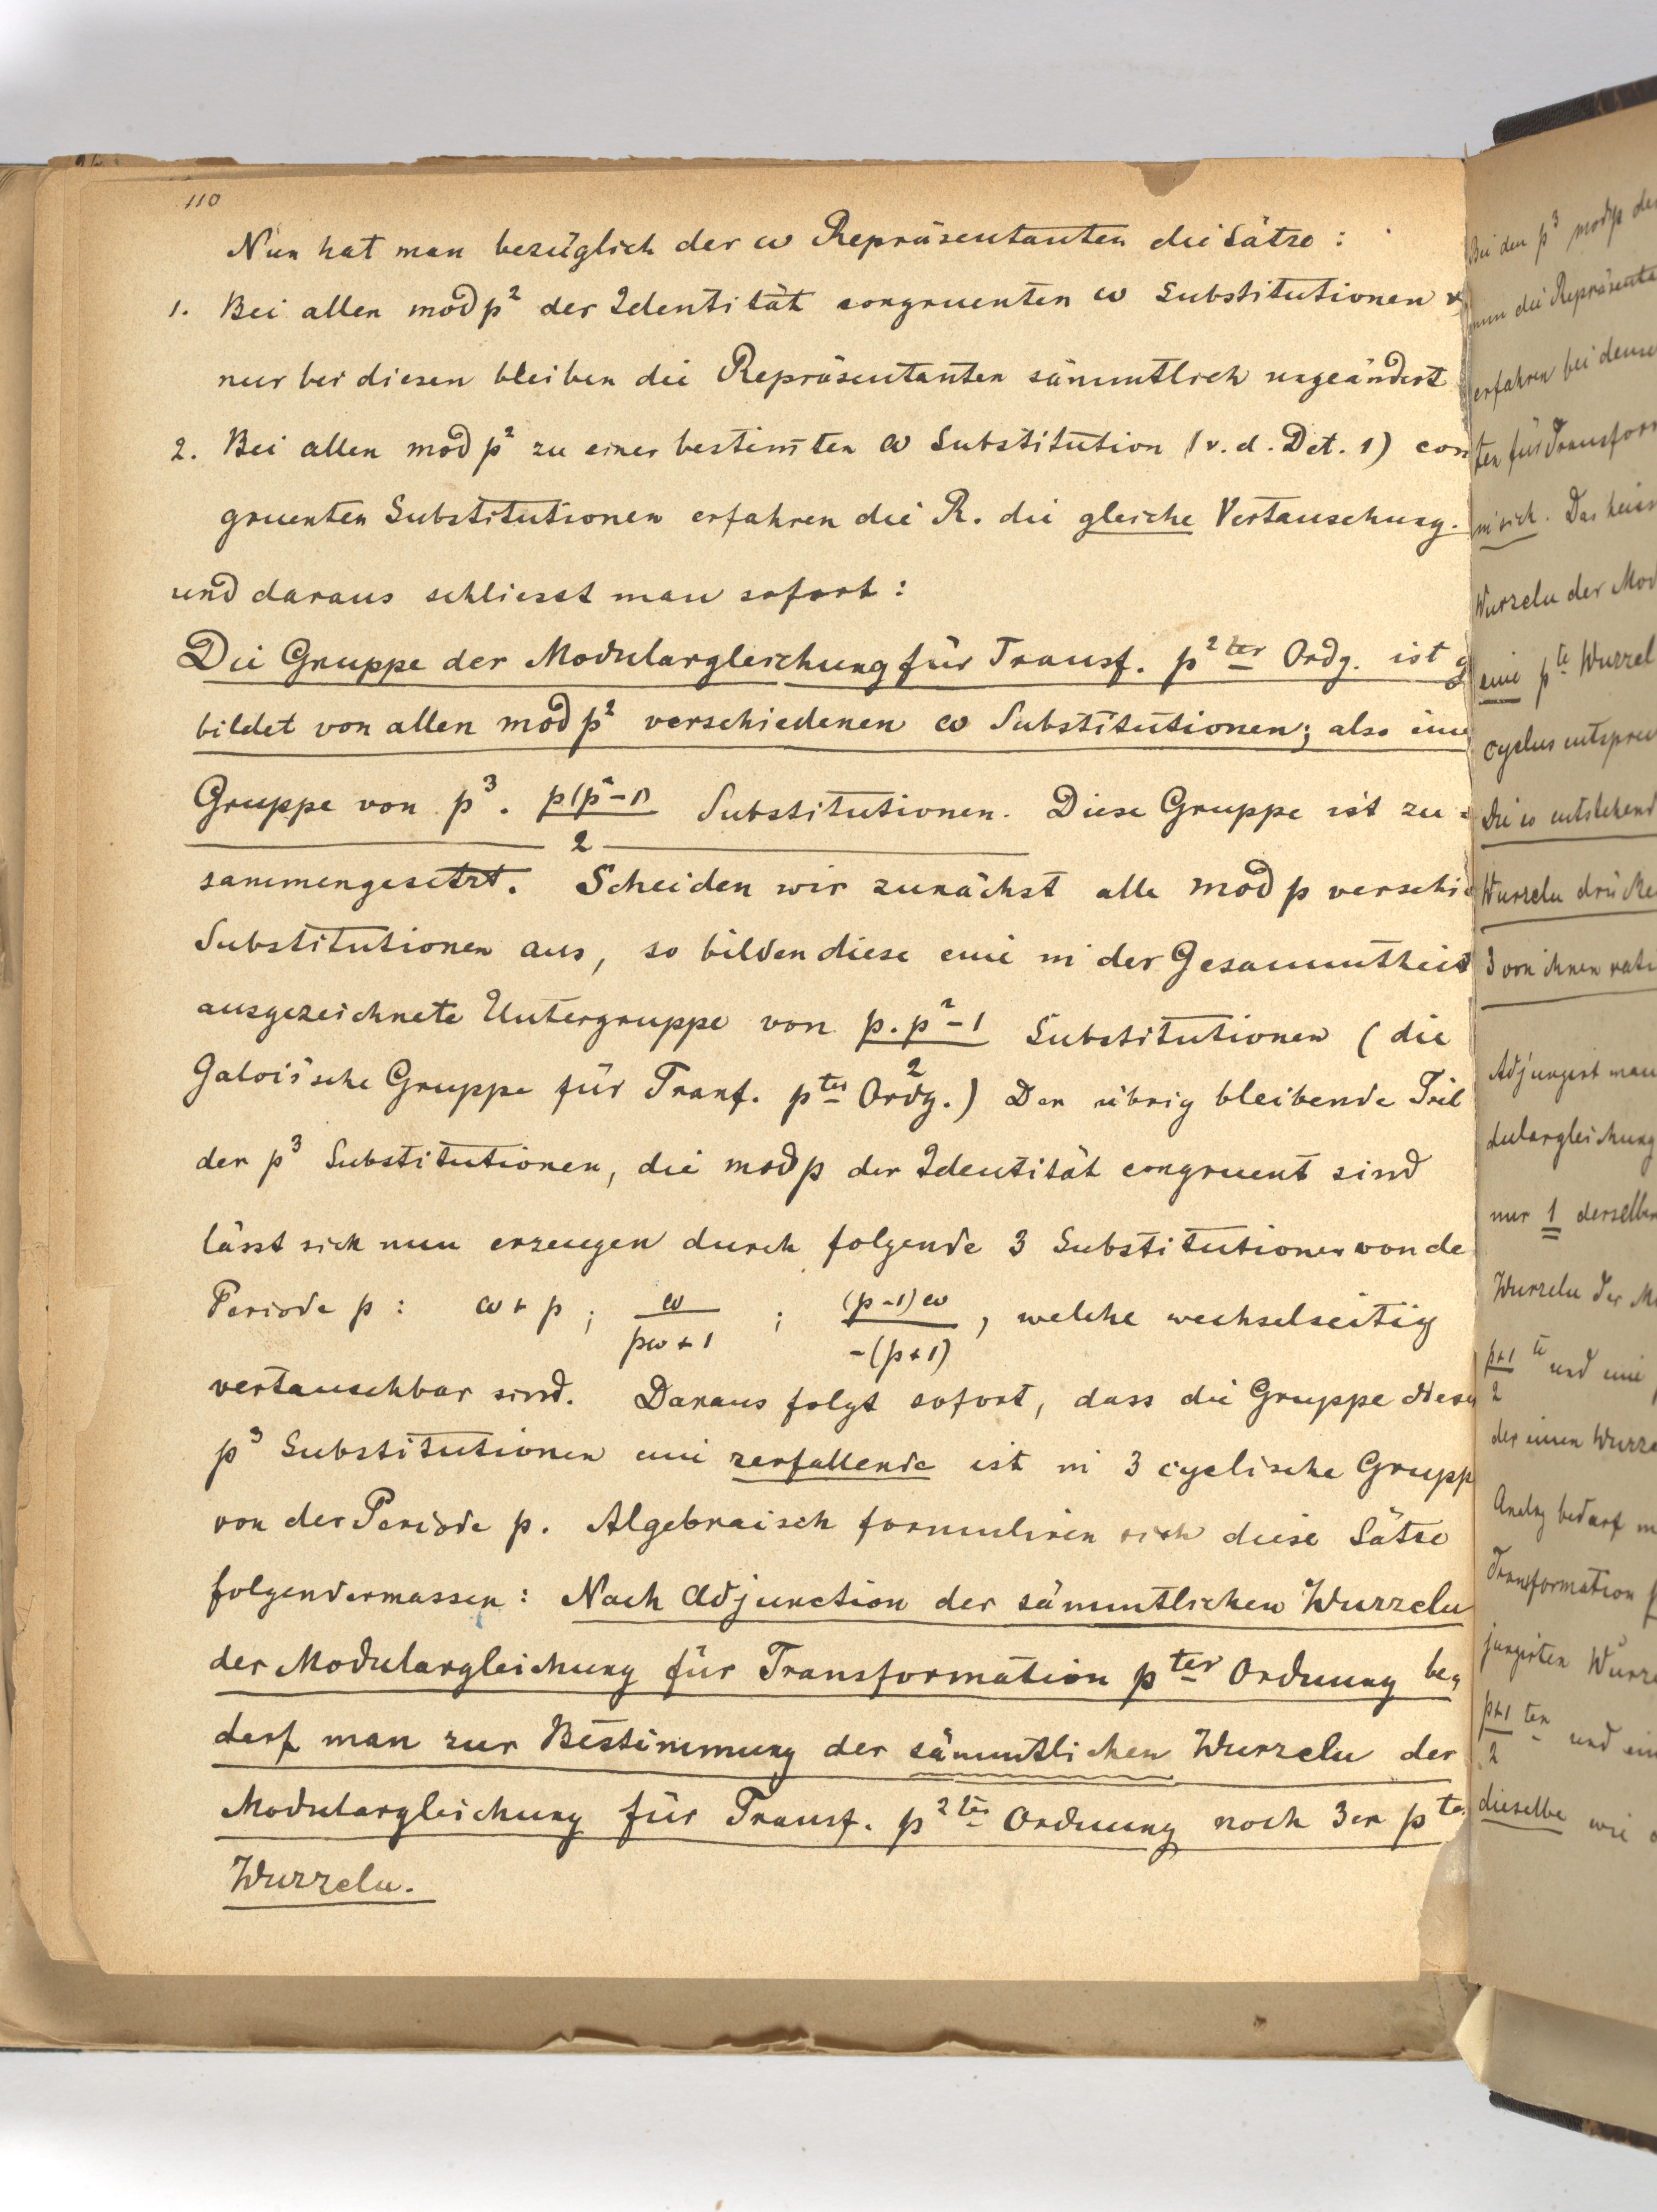 110
Nun hat man bezüglich der ω Repräsentanten die Sätze:
1. Bei allen mod p² der Identität congruenten ω Substitutionen
nur bei diesen bleiben die Repräsentanten sämmtlich ungeändert
2. Bei allen mod p² zu einer bestim̅ten ω Substitution (v. d. Det. 1) con
gruenten Substitutionen erfahren die R. die gleiche Vertauschung.
und daraus schliesst man sofort:
Die Gruppe der Modulargleichung für Transf. p²ter Ordg. ist g
bildet von allen mod p² verschiedenen ω Substitutionen; also eine
Gruppe von p³. p(p²-1)/2 Substitutionen. Diese Gruppe ist zu
sammengesetzt. Scheiden wir zunächst alle mod p verschie
Substitutionen aus, so bilden diese eine in der Gesammtheit
ausgezeichnete Untergruppe von p.p²-1/2 Substitutionen (die
Galois'sche Gruppe für Tranf. pter Ordg.) Der übrig bleibende Teil
der p³ Substitutionen, die mod p der Identität congruent sind
lässt sich nun erzeugen durch folgende 3 Substitutionen von de
Periode p: ω+p; ω/pω+1; (p-1)ω/-(p+1), welche wechselseitig
vertauschbar sind. Daraus folgt sofort, dass die Gruppe diese
p³ Substitutionen eine zerfallende ist in 3 cyclische Grupp
von der Periode p. Algebraisch formuliren sich diese Sätze
folgendermassen: Nach Adjunction der sämmtlichen Wurzeln
der Modulargleichung für Transformation pter Ordnung be,
darf man zur Bestimmung der sämmtlichen Wurzeln der
Modulargleichung für Transf. p²ter Ordnung noch 3er pter
Wurzeln.
Bei den p³ mod p de
nun die Repräsenta
erfahren bei dense
ten für Transfor
in sich. Das heis
Wurzeln der Mod
eine pte Wurzel
cyclus entspre
Die so entstehend
Wurzeln drücke
3 von ihnen rati
Adjungirt man
dulargleichung
nur 1 derselben
Wurzeln der M
p+1/2 te und eine
der einen Wurze
Analog bedarf m
Transformation f
jungirten Wurz
p+1/2 ten und ein
dieselbe wie